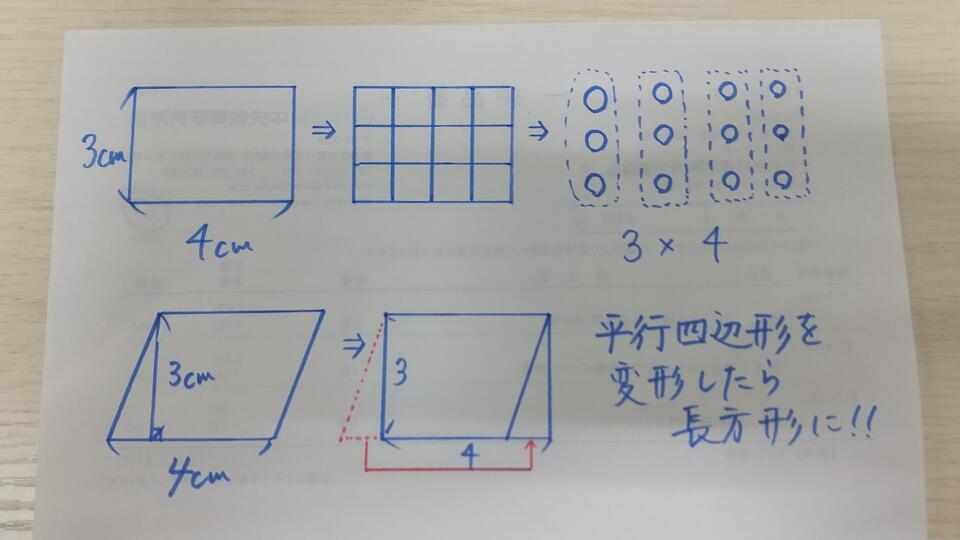 3cm
4cm
⇒
⇒
3 × 4
3cm
4cm
⇒
3
4
平行四辺形を
変形したら
長方形に!!